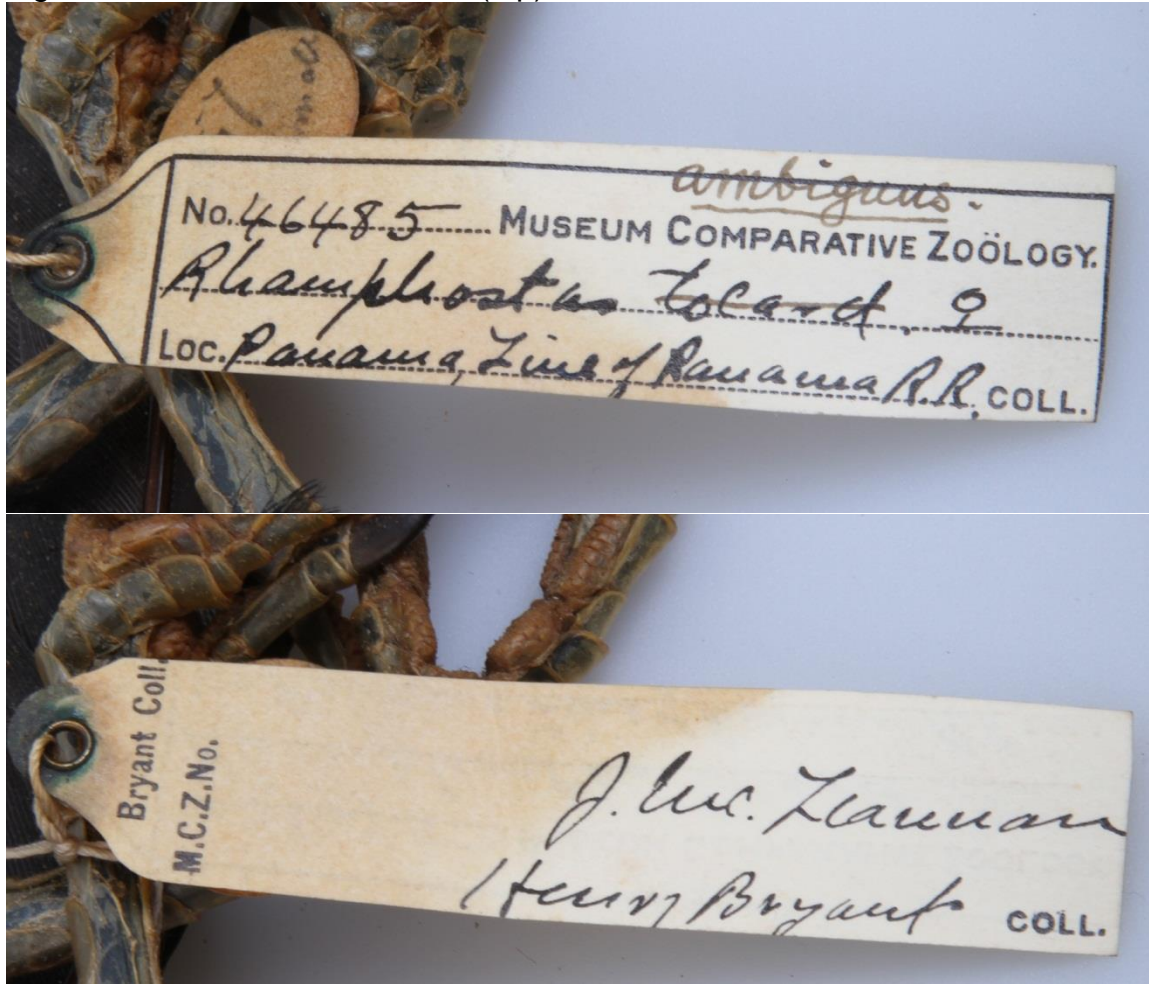 ambiguus.
No. 46485 MUSEUM COMPARATIVE ZOÖLOGY.
Rhamphostos tocard. ♀
Loc. Panama, Line of Panama R.R. COLL.
Bryant Coll.
M.C.Z.No.
J. Mc. Leannan
Henry Bryant COLL.